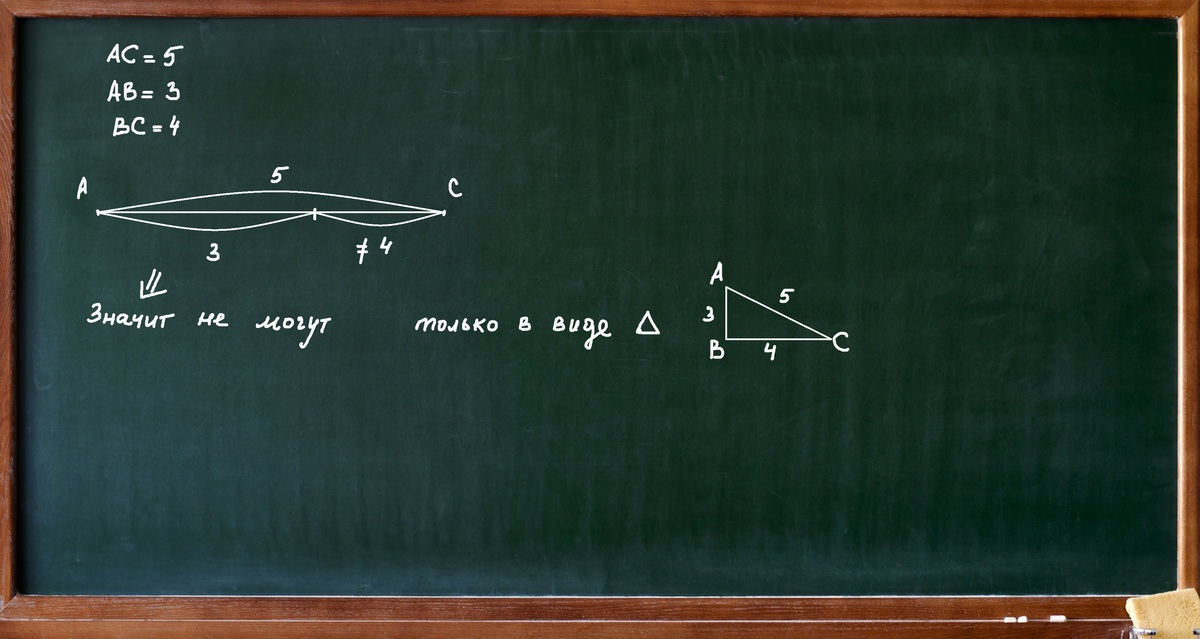 AC = 5
AB = 3
BC = 4
5
A C
3 ≠ 4
⇓
Значит не могут только в виде Δ
A
3 5
B 4 C